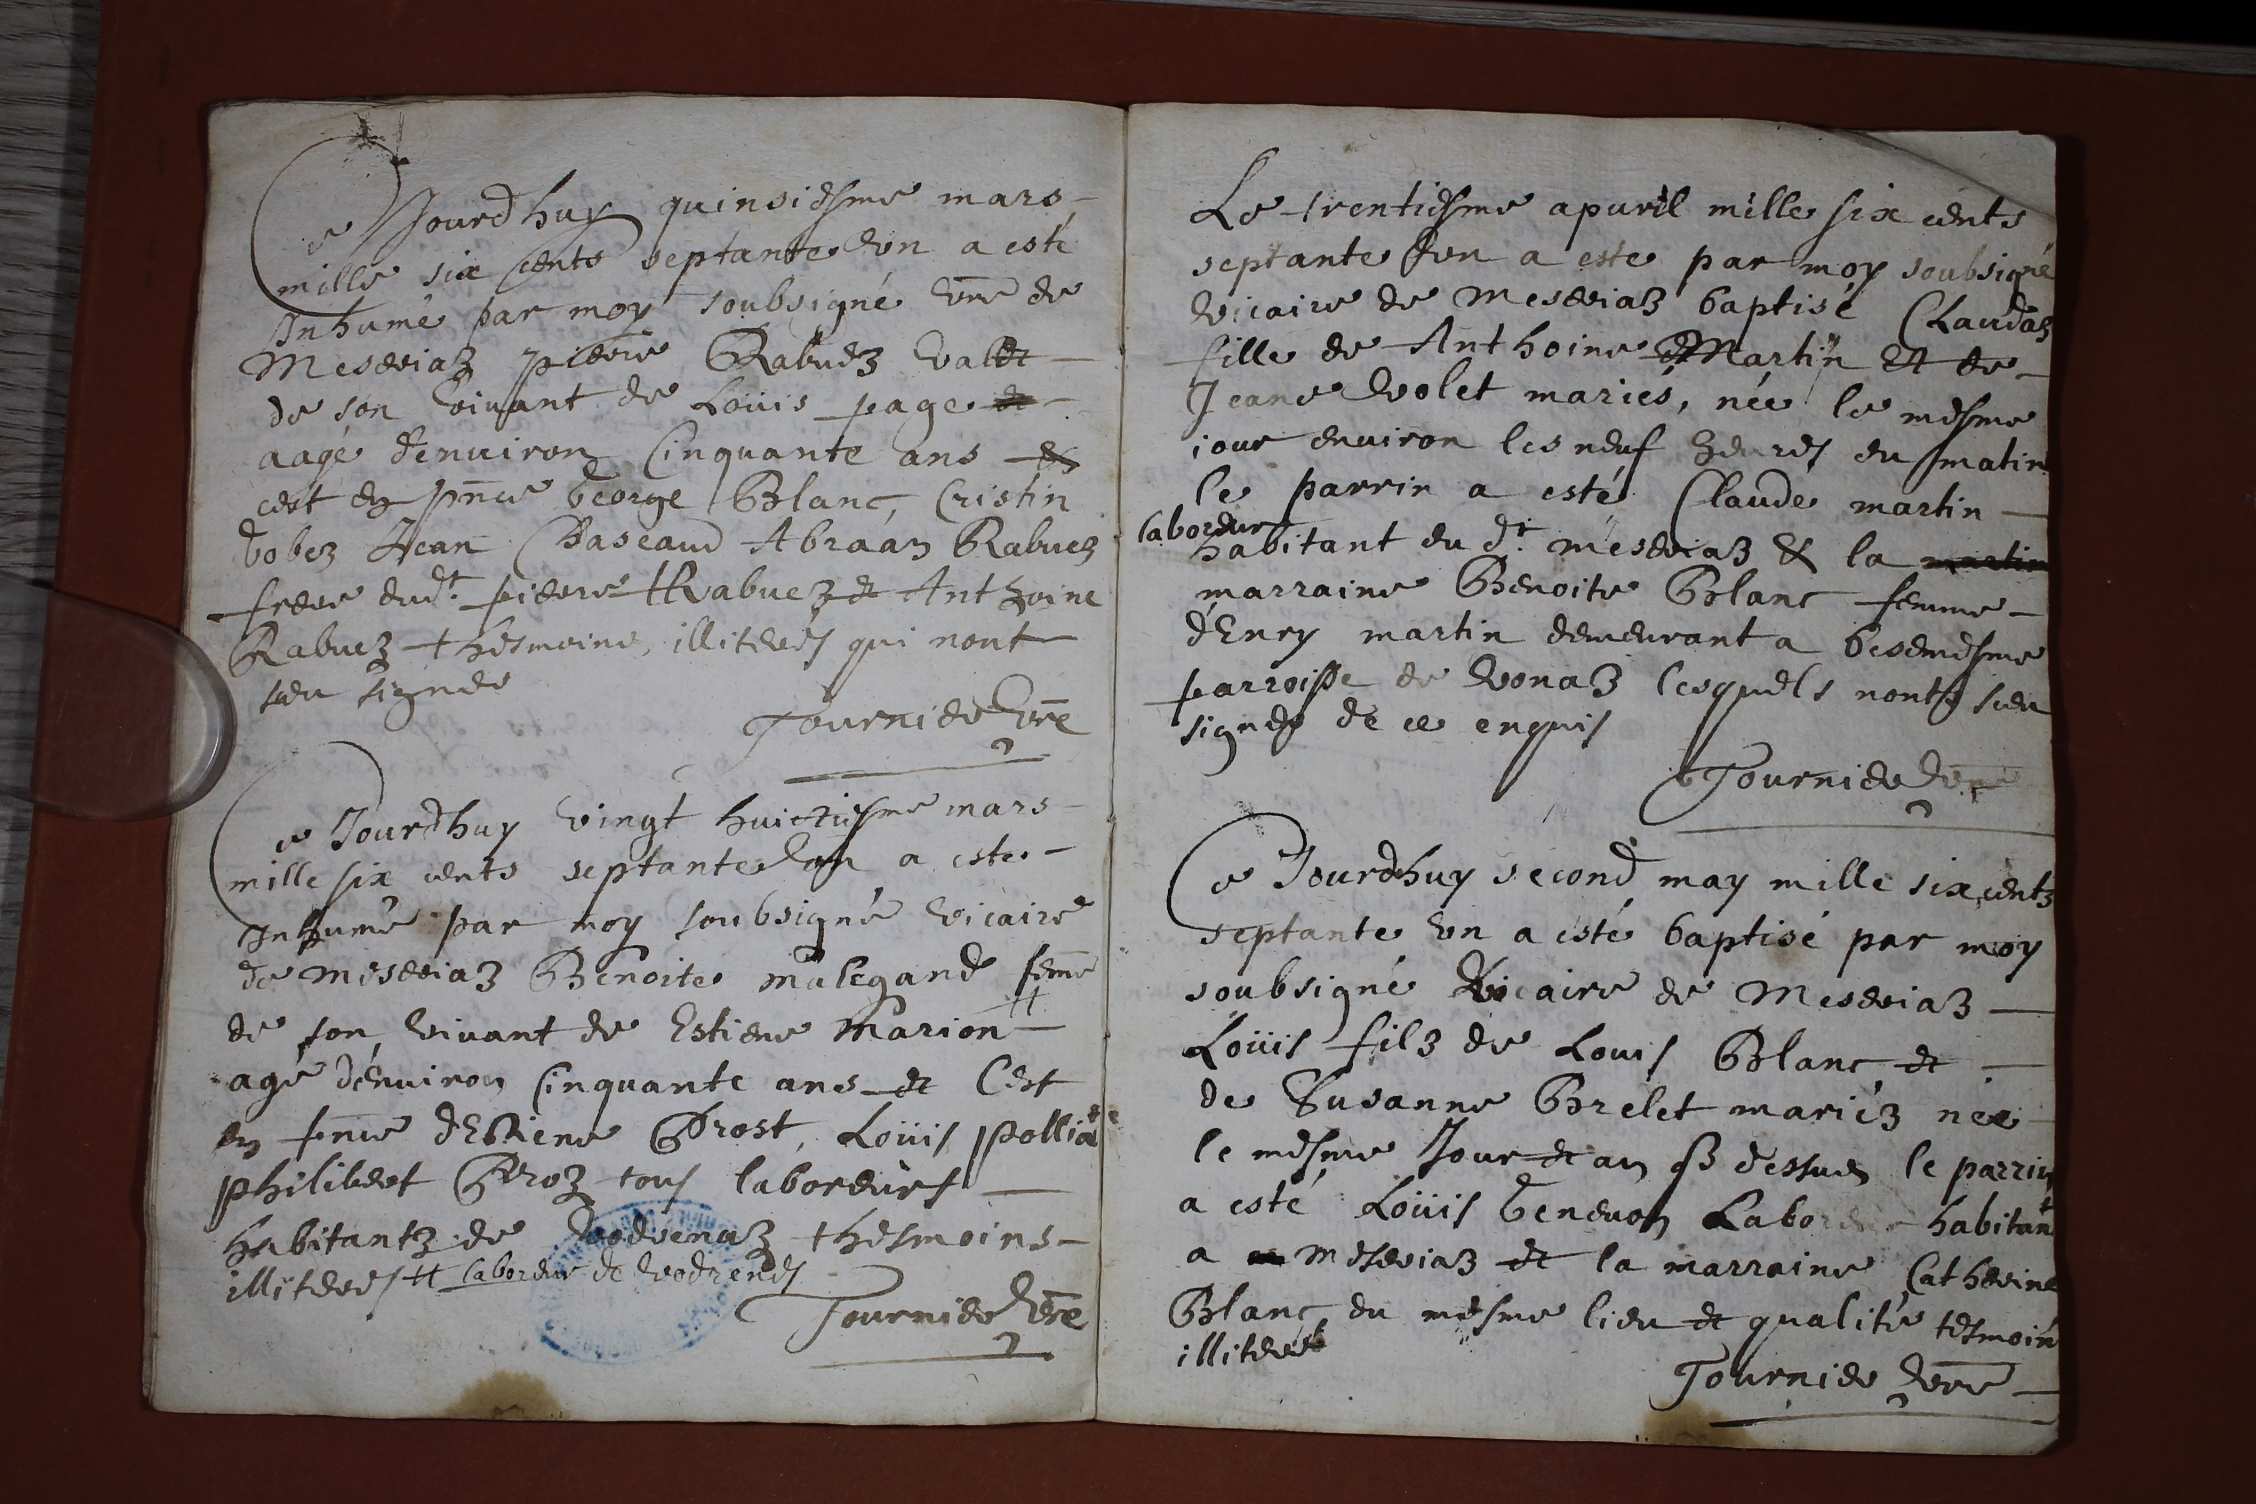 Ce Jourdhuy quinsiesme mars
mille six cents septante un a esté
Inhumé par moy soubsigné vire de
Meseriaz pierre Rabuez valet
de son vivant de Loüis page
aagé denuiron Cinquante ans et
cest en pnce George Blanc, Cristin
Gobez Jean Baseaud Abraan Rabuez
frere dudt pierre Rabuez et Anthoine
Rabuez thesmoins, illiteres qui nont
sceu signer
Tournier vre
Ce Jourdhuy vingt huictiesme mars
mille six cents septante un a este
Inhumé par moy soubsigné vicaire
de Meseriaz Benoite malegand feme
de son vivant de Estiene Marion
agé d'enuiron Cinquante ans et Cest
en pnce d'Estiene Prost, Loüis Polliat
philibert Broz tous laboreurs
habitantz de vodrenaz thesmoins
illiteres # laboreur de vodrenes
Tournier vre
Le trentiesme apuril mille six cents
septante un a este par moy soubsigné
vicaire de Meseriaz baptisé Claudaz
fille de Anthoine Martin et de
Jeane volet mariés, née le mesme
jour enuiron les neuf heures du matin
le parrin a esté Claude martin
laboreur
habitant du dt meseriaz & la
marraine Benoite Blanc femme
d'Enry martin demeurant a besemesme
parroisse de vonaz lesquels nont sceu
signer de ce enquis
Tournier
Ce Jourdhuy second may mille six centz
septante un a esté baptisé par moy
soubsigné vicaire de Meseriaz
Loüis filz de Louis Blanc et
de Susanne Brelet mariéz née
le mesme Jour et an q3 dessus le parrin
a esté Loüis Genevon Laboreur habitant
a meseriaz et la marraine Catherine
Blanc du mesme lieu et qualité tesmoin
illiteres
Tournier vre